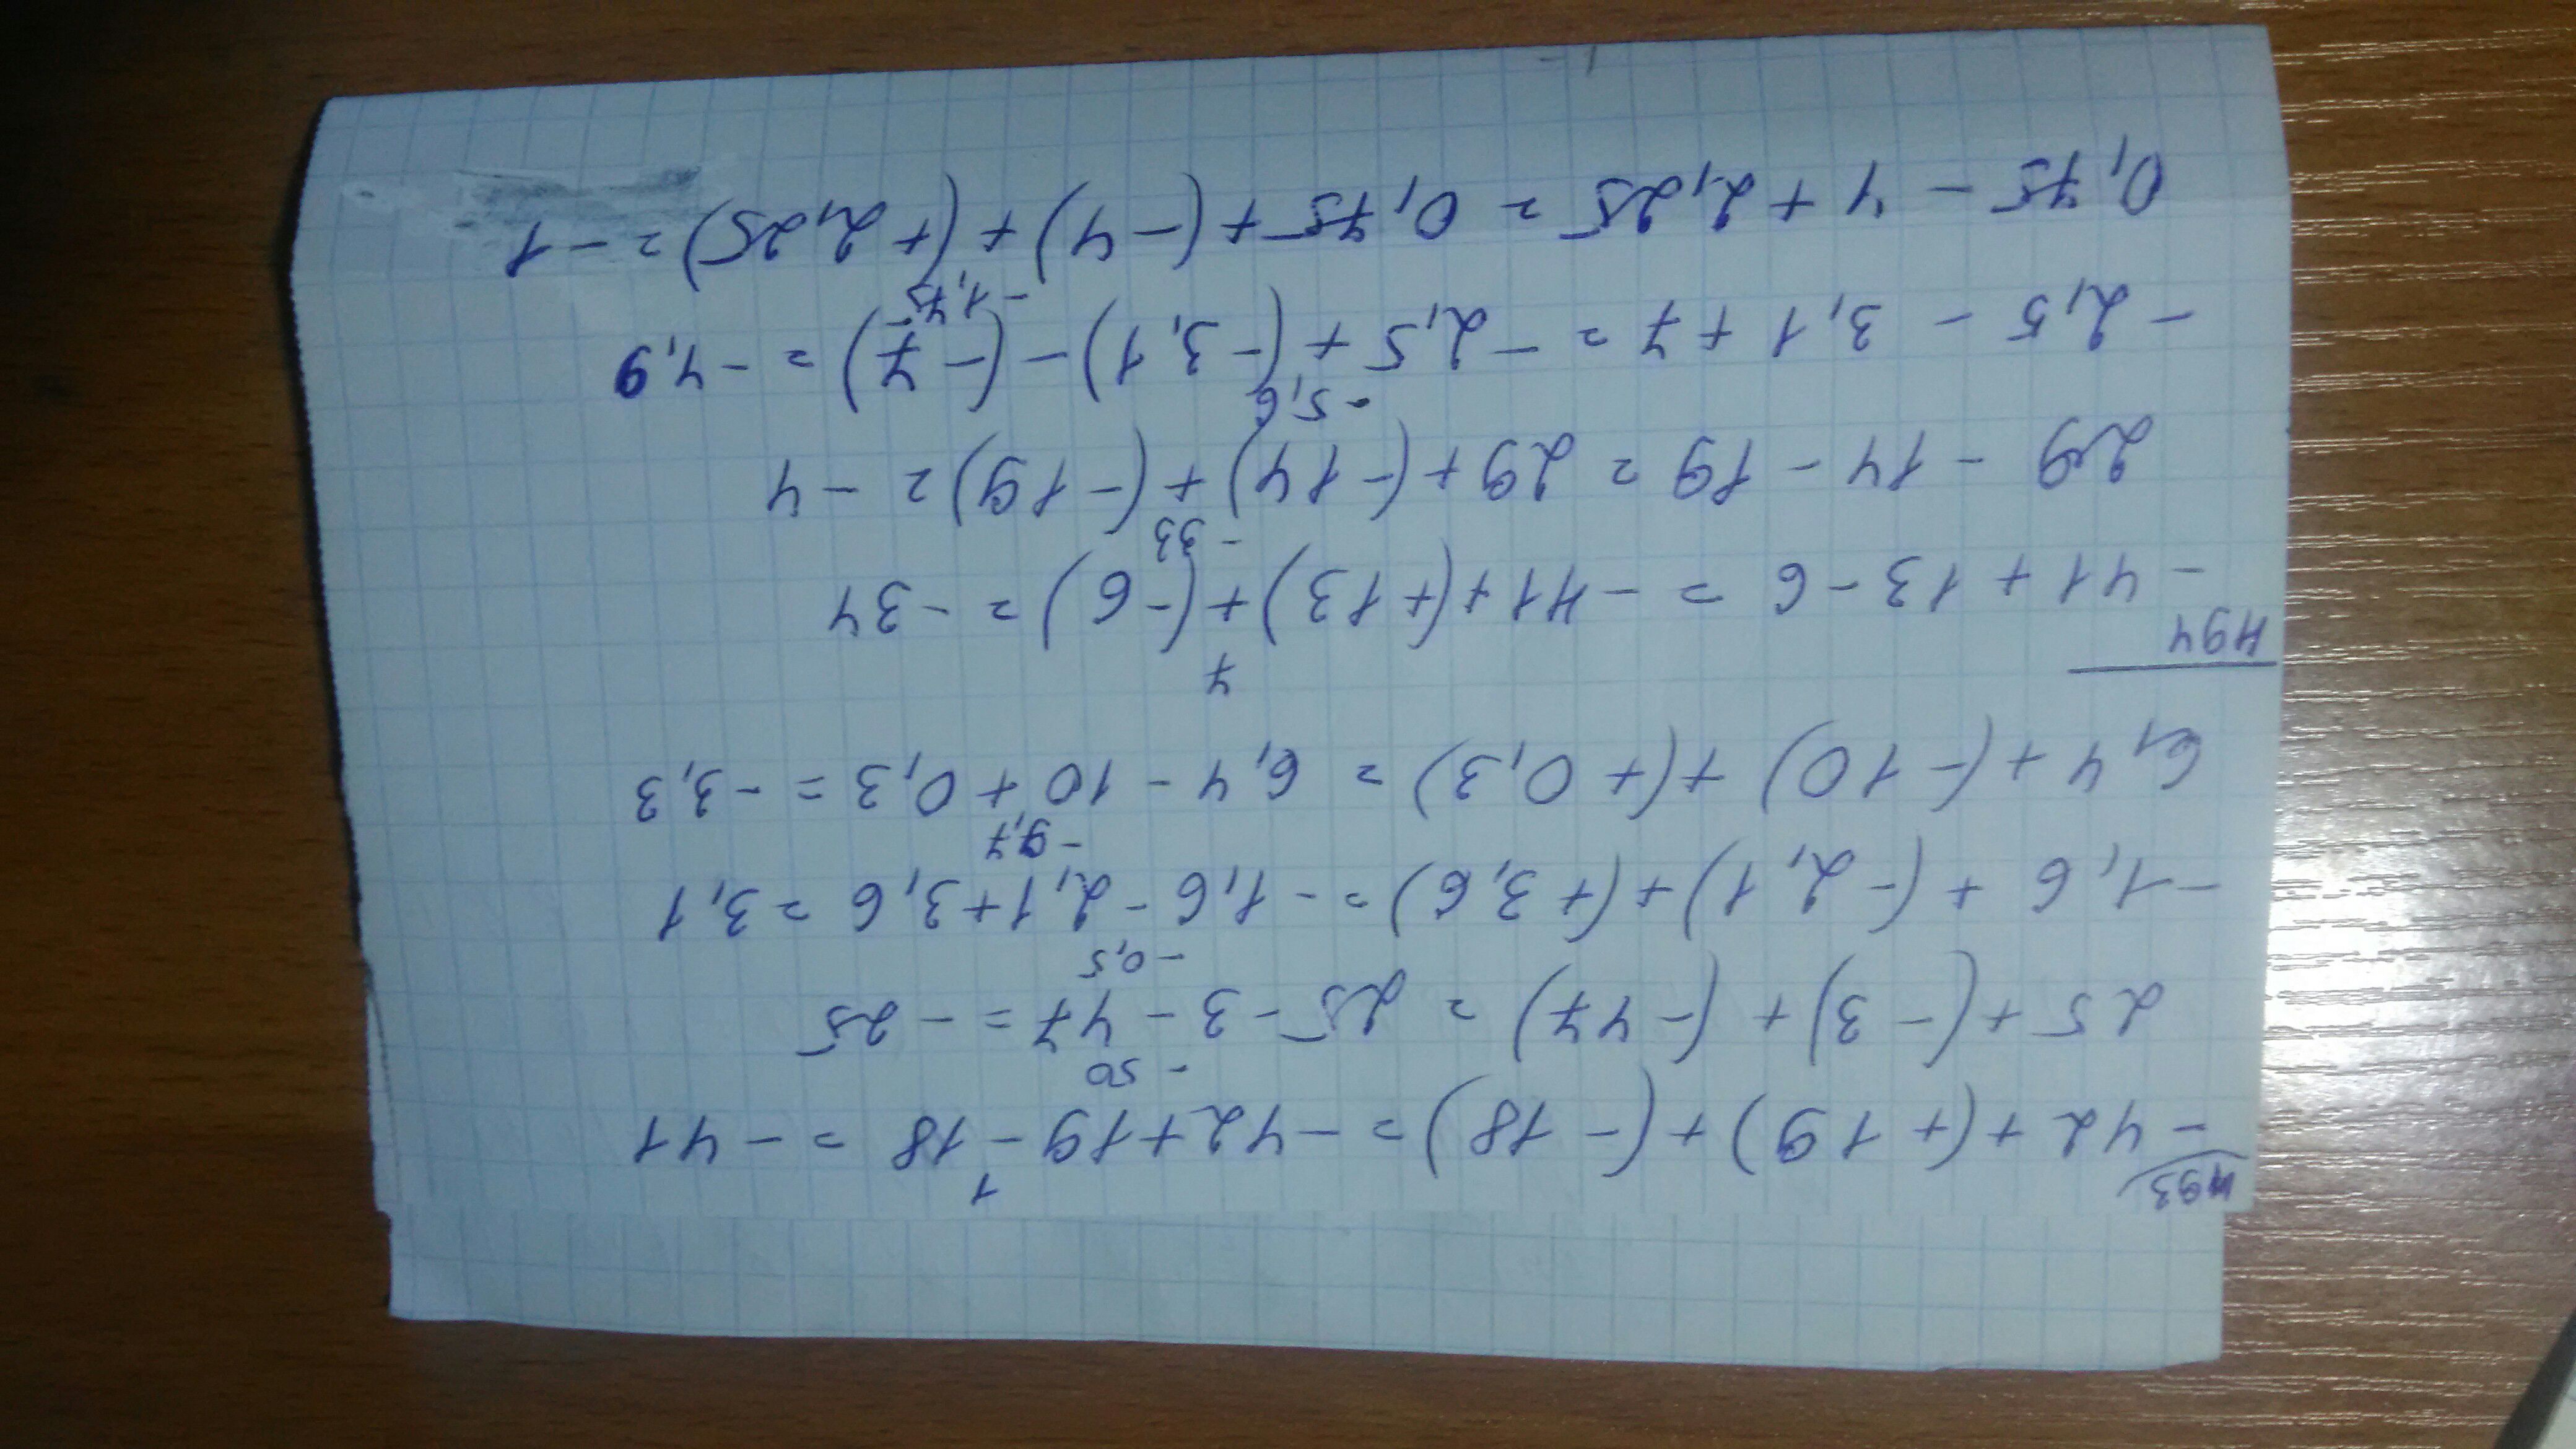 493
1
- 42 + (+ 19) + (- 18) = - 42 + 19 - 18 = - 41
- 50
25 + (- 3) + (- 47) = 25 - 3 - 47 = - 25
- 0,5
- 1,6 + (- 2,1) + (+ 3,6) = - 1,6 - 2,1 + 3,6 = 3,1
- 9,7
6,4 + (- 10) + (+ 0,3) = 6,4 - 10 + 0,3 = - 3,3
7
494
- 41 + 13 - 6 = - 41 + (+ 13) + (- 6) = - 34
- 33
29 - 14 - 19 = 29 + (- 14) + (- 19) = - 4
- 5,6
- 2,5 - 3,1 + 7 = - 2,5 + (- 3,1) - (- 7) = - 4,9
- 1,75
0,75 - 4 + 2,25 = 0,75 + (- 4) + (+ 2,25) = - 1